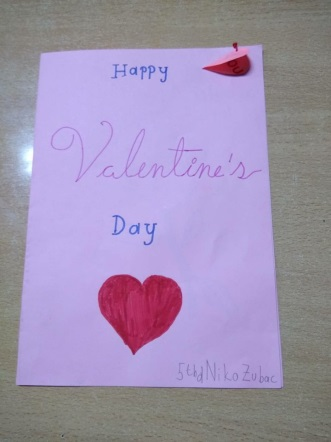 Happy
Valentine's
Day
5thd Niko Zubac